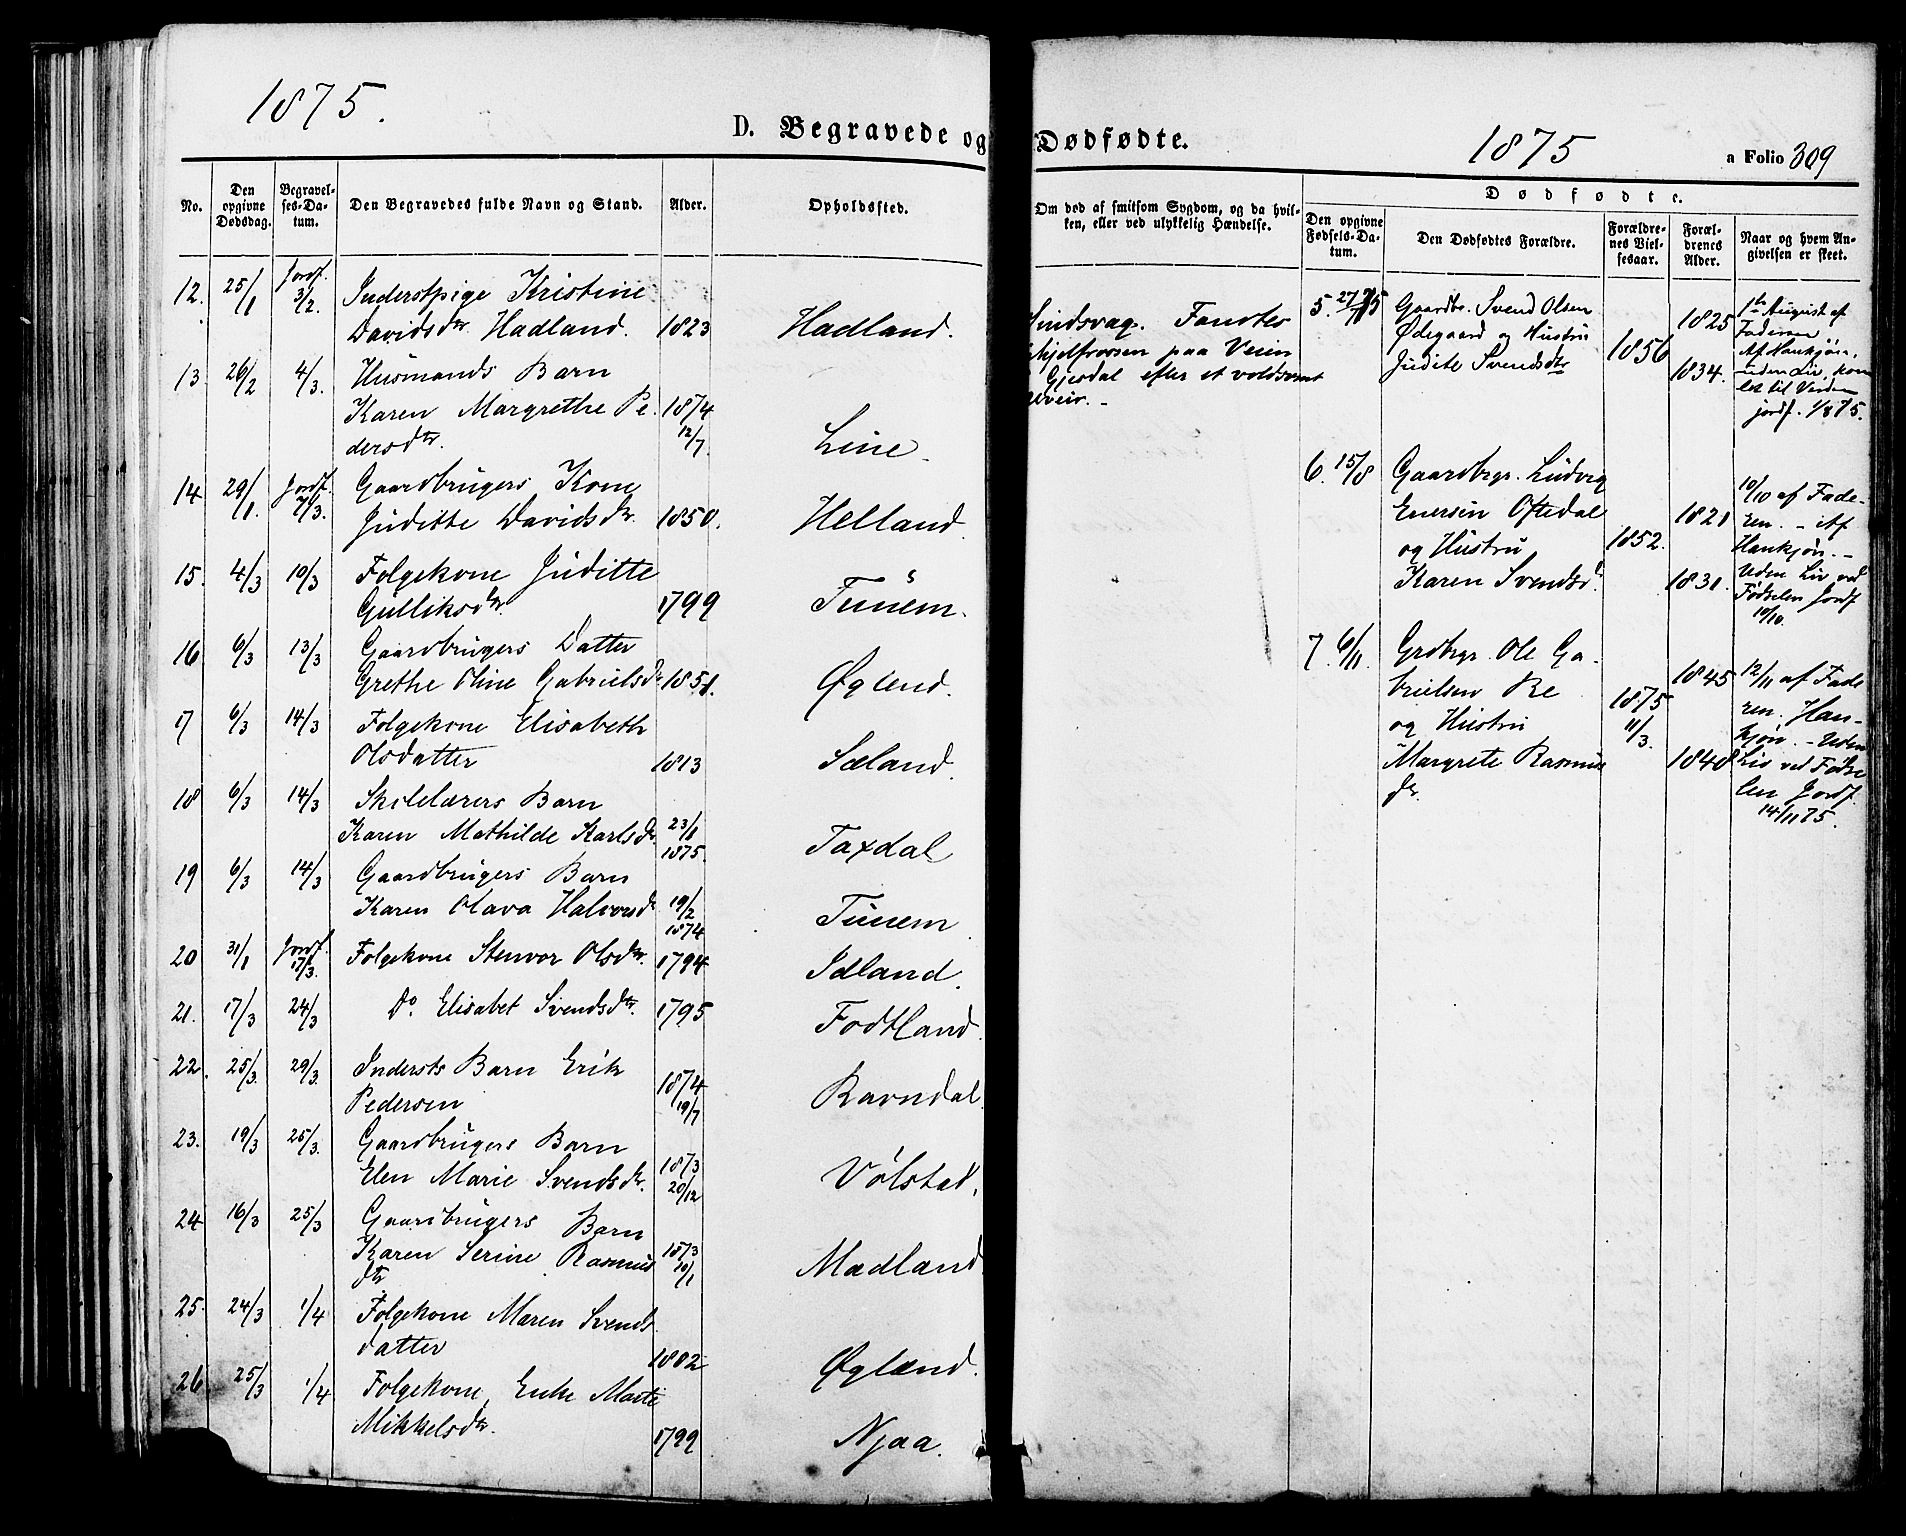 1875.
D. Begravede og Dødfødte.
1875
a Folio 309
No.
Den opgivne Dødsdag.
Begravelses-Datum.
Den Begravedes fulde Navn og Stand.
Alder.
Opholdssted.
Om død af smitsom Sygdom, og da hvilken, eller ved ulykkelig Hændelse.
Dødfødte.
Den opgivne Fødsels-Datum.
Den Dødfødtes Forældre.
Forældrenes Vielsesaar.
Forældrenes Alder.
Naar og hvem Angivelsen er skeet.
12. 25/1 Jordf. 3/2. Inderstpige Kristine
Davidsdtr. Hadland. 1823 Hadland.
13 26/2 4/3. Husmands Barn
Karen Margrethe Pe- 1874
dersdtr. 12/7. Line
14 29/1. Jordf. 7/3. Gaardbrugers Kone
Juditte Davidsdr. 1850. Helland.
15. 4/3 10/3 Folgekone Juditte
Gulliksdtr. 1799 Tunem.
16 6/3 13/3 Gaardbrugers Datter
Grethe Oline Gabrielsdr 1851. Øglend.
17 6/3 14/3 Folgekone Elisabeth
Olsdatter 1813 Sæland.
18 6/3 14/3 Skolelærers Barn
Karen Mathilde Karlsdr 23/1
1875. Taxdal
19 6/3 14/3 Gaardbrugers Barn
Karen Olava Halvorsdr 19/2
1874 Tunem
20 31/1 Jordf. 17/3. Folgekone Stenvor Olsdtr. 1794 Idland.
21. 17/3 24/3 Do. Elisabet Svendsdtr. 1795 Fodtland
22. 25/3. 29/3. Indersts Barn Erik
Pedersen 1874
19/7 Ravndal.
23. 19/3 25/3. Gaardbrugers Barn
Elen Marie Svendsdr. 1873
20/12 Vølstad.
24 16/3 25/3 Gaardbrugers Barn
Karen Serine Rasmus 1873
dtr 10/1 Madland
25. 24/3 1/4 Folgekone Maren Svends
datter 1802 Øglænd.
26 25/3 1/4 Folgekone, Enke Marte
Mikkelsdtr. 1799 Njaa.
Sindsvag. Fandtes
ihjelfrossen paa Veien
Gjesdal efter et voldsomt
uveir. –
5. 27/7 75 Gaardbr. Svend Olsen
Ødegaard og Hustru
Judite Svendsdtr
1856
1825
1834.
1ste August af
Faderen
Af Hankjøn.
uden Liv, kom
let til Verden
jordf. 1/8 75.
6. 15/8 Gaardbrgr. Ludvig
Enersen Oftedal
og Hustru
Karen Svendsd
1852.
1821
1831.
10/10 af Fade-
ren. – Af
Hankjøn. –
Uden Liv ved
Fødselen Jordf
10/10.
7. 6/11. Grdbrgr. Ole Ga-
brielsen Re
og Hustru
Margrete Rasmus
dr.
1875
11/3.
1845
1840
12/11 af Fade
ren. Han-
kjøn. – Uden
Liv ved Fødse
len Jordf
14/11 75.